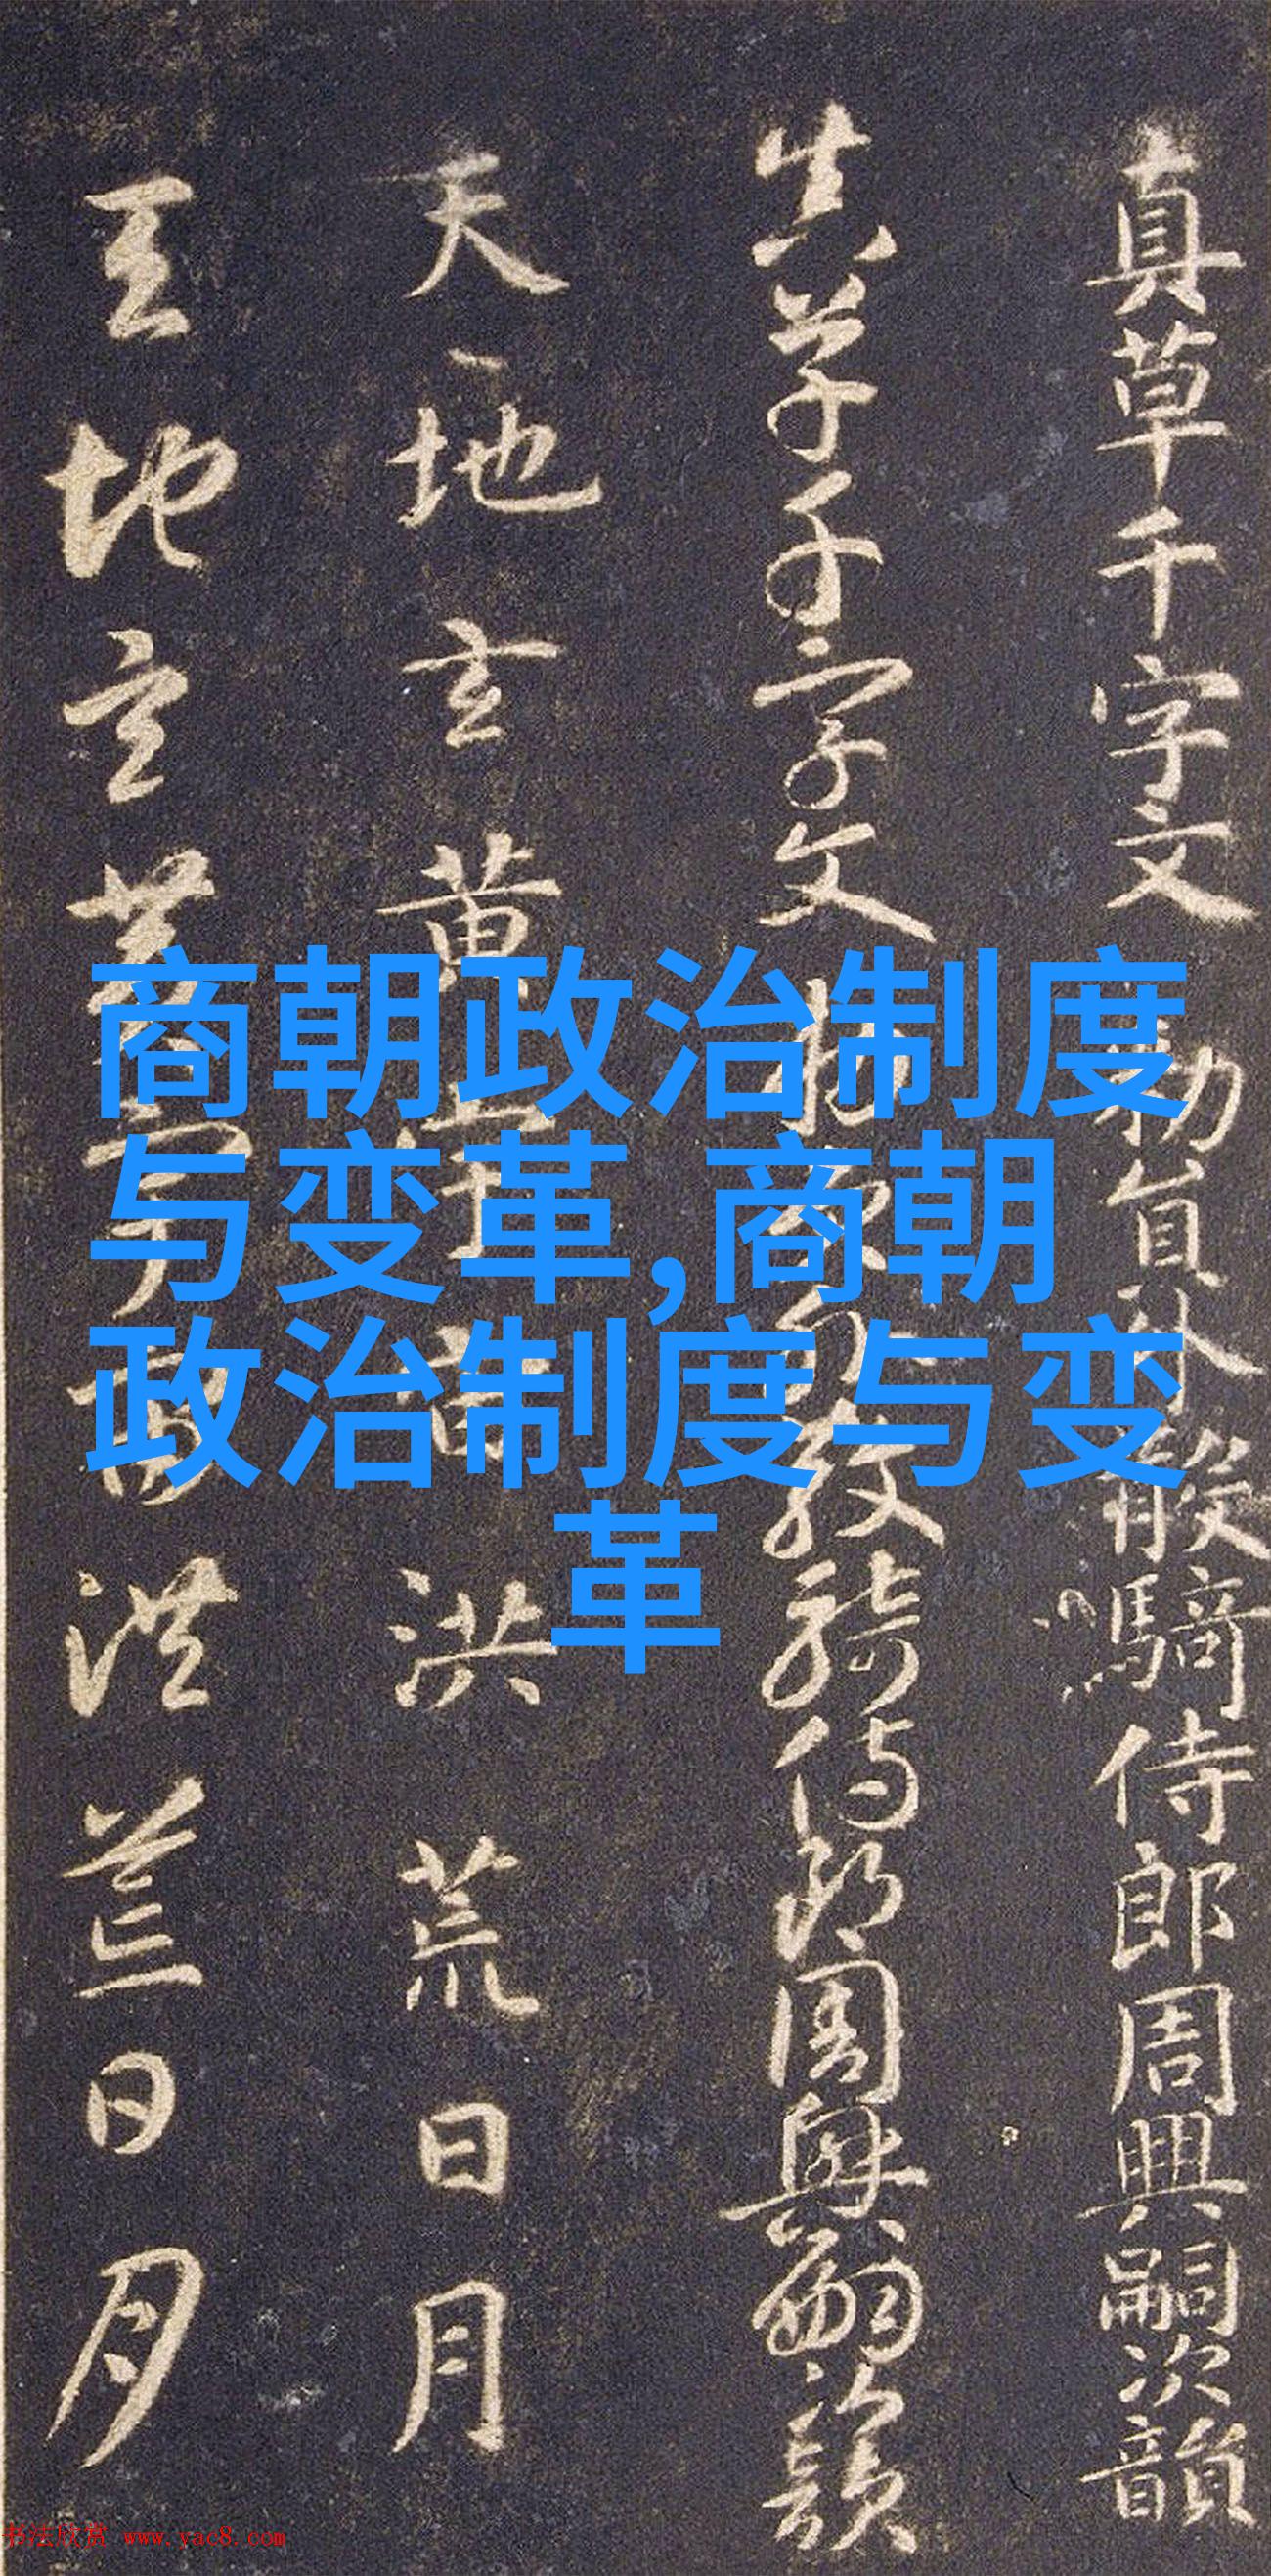 真草千字文 勅員外散騎侍郎周興嗣次韻
真草千字文 勅員外散騎侍郎周興嗣次韻
天地玄黄宇宙洪荒日月
天地玄黄宇宙洪荒日月
商朝政治制度
与变革,商朝
政治制度与变
革
书法欣赏 www.yac8.com